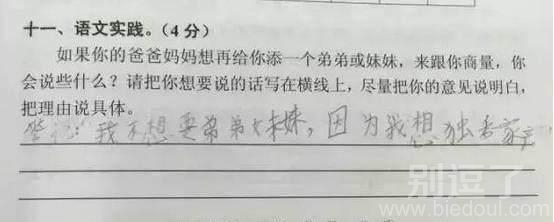 十一、语文实践。(4 分)
如果你的爸爸妈妈想再给你添一个弟弟或妹妹，来跟你商量，你
会说些什么？请把你想要说的话写在横线上，尽量把你的意见说明白，
把理由说具体。
答：我不想要弟弟妹妹，因为我想独吞家产
别逗了
www.biedoul.com